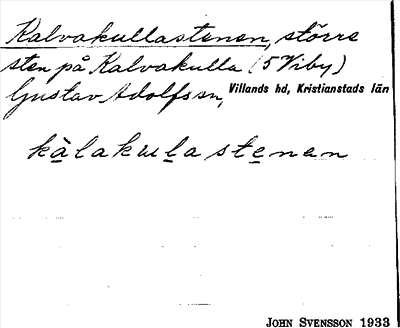 Kalvakullastenen, större
sten på Kalvakulla (5 Viby)
Gustav Adolfs sn, Villands hd, Kristianstads län
kàlakula stenen
JOHN SVENSSON 1933